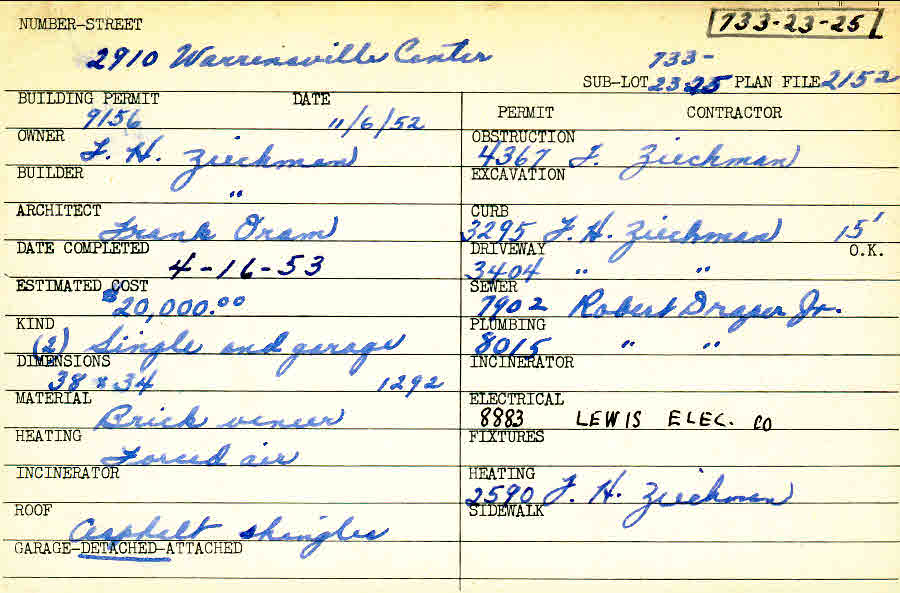 NUMBER-STREET 733-23-25
2910 Warrensville Center 733-
SUB-LOT 2325 PLAN FILE 2152
BUILDING PERMIT DATE
9156 11/6/52
OWNER
F. H. Zieckman
BUILDER
"
ARCHITECT
Frank Oram
DATE COMPLETED
4-16-53
ESTIMATED COST
$20,000.00
KIND
(2) Single and garage
DIMENSIONS
38 x 34 1292
MATERIAL
Brick veneer
HEATING
Forced air
INCINERATOR
ROOF
Asphalt shingles
GARAGE-DETACHED-ATTACHED
PERMIT CONTRACTOR
OBSTRUCTION
4367 F. Zieckman
EXCAVATION
CURB
3295 F. H. Zieckman 15'
DRIVEWAY O.K.
3404 " "
SEWER
7902 Robert Draper Jr.
PLUMBING
8015 " "
INCINERATOR
ELECTRICAL
8883 LEWIS ELEC. CO
FIXTURES
HEATING
2590 F. H. Zieckman
SIDEWALK